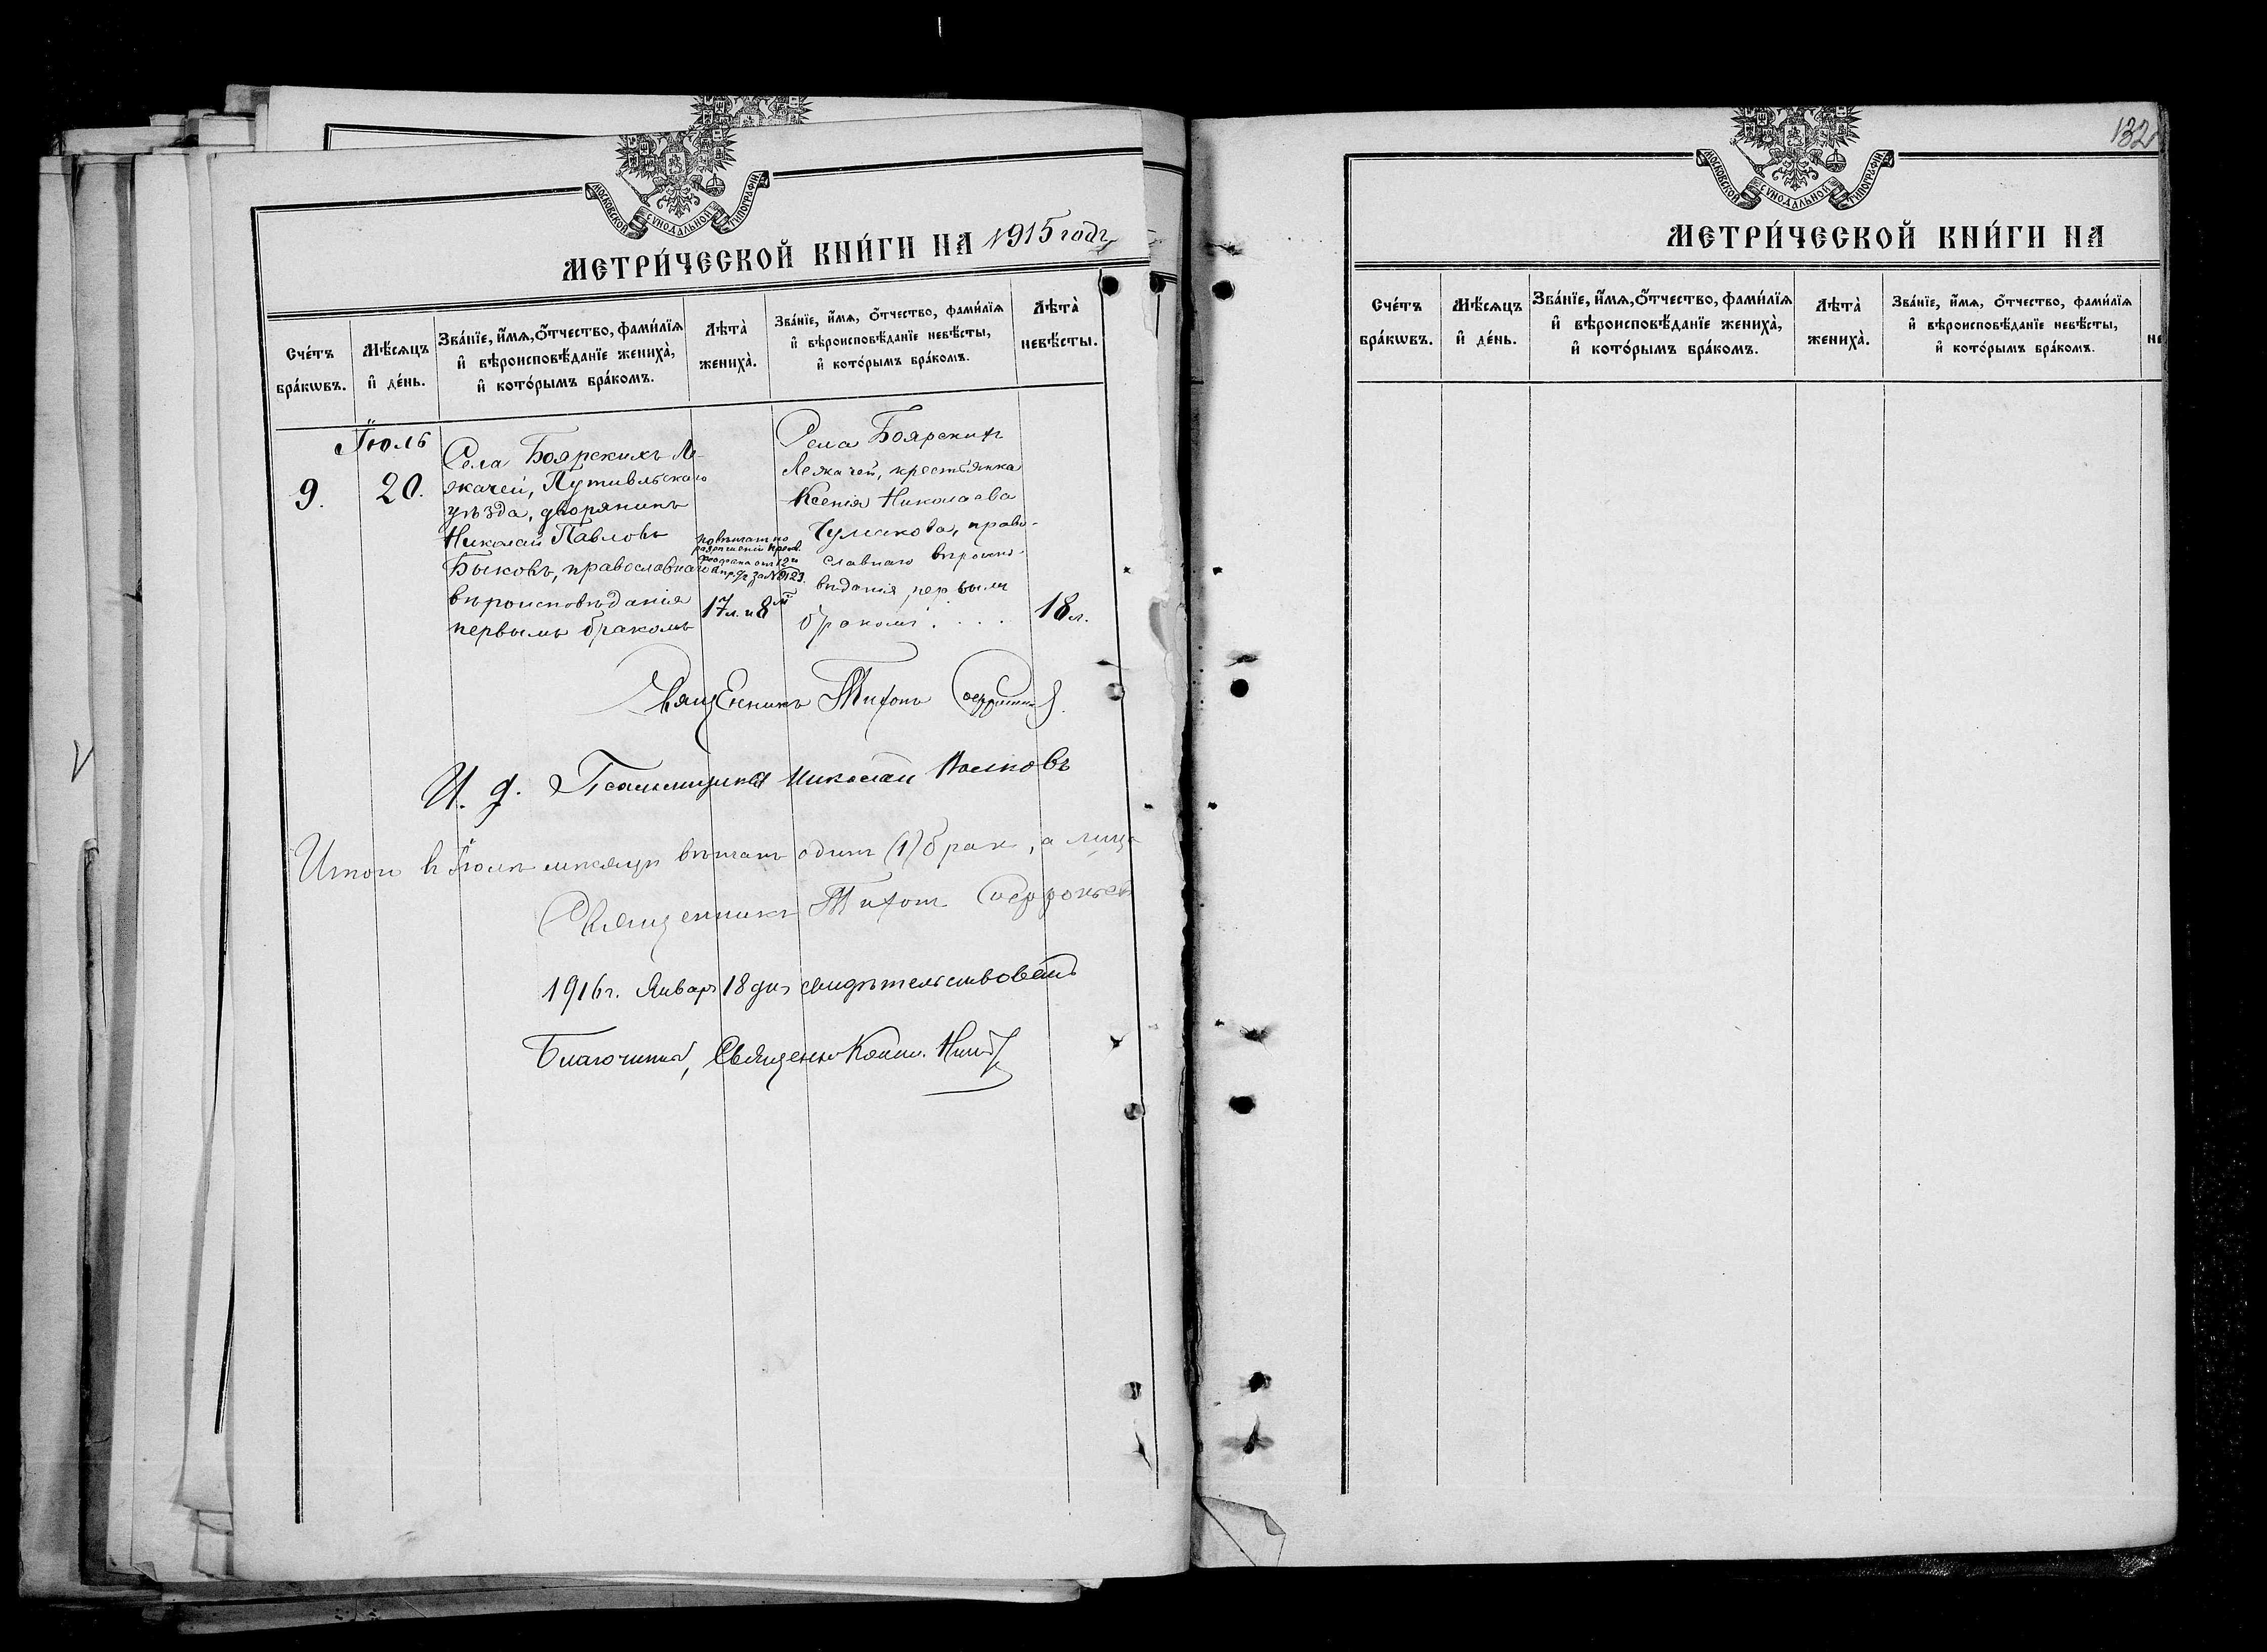 МОСКОВСКОЙ СѴНОДАЛЬНОЙ ТИПОГРАФІИ
МЕТРИ́ЧЕСКОЙ КНИ́ГИ НА 1915 годъ
Сче́тъ бра́кωвъ.
Мѣ́сяцъ и҆ де́нь.
Зва́нїе, и҆́мѧ, ѻ҆́тчество, фами́лїѧ
и҆ вѣроисповѣ́данїе жениха̀,
и҆ кото́рымъ бра́комъ.
Лѣта̀ жениха̀.
Зва́нїе, и҆́мѧ, ѻ҆́тчество, фами́лїѧ
и҆ вѣроисповѣ́данїе невѣ́сты,
и҆ кото́рымъ бра́комъ.
Лѣта̀ невѣ́сты.
9.
Іюль
20.
Села Боярскихъ Ле-
жачей, Путивльскаго
уѣзда, дворянинъ
Николай Павловъ
Быковъ, православнаго
вѣроисповѣданія
первымъ бракомъ
повѣнчанъ по
разрешенію
за №8123.
17 л. и 8 м
Села Боярскихъ
Лежачей, крестьянка
Ксенія Николаева
Чумакова, право-
славнаго вѣроиспо-
вѣданія первымъ
бракомъ . . . .
18 л.
Священникъ Тихонъ
И. д. Псаломщика Николай Волковъ
Итого въ Іюлѣ мѣсяцѣ вѣнчанъ одинъ (1) бракъ, а лица
Священникъ Тихонъ
1916 г. Январ 18 дня свидѣтельствовалъ
Благочинный, Священникъ
132
МОСКОВСКОЙ СѴНОДАЛЬНОЙ ТИПОГРАФІИ
МЕТРИ́ЧЕСКОЙ КНИ́ГИ НА
Сче́тъ бра́кωвъ.
Мѣ́сяцъ и҆ де́нь.
Зва́нїе, и҆́мѧ, ѻ҆́тчество, фами́лїѧ
и҆ вѣроисповѣ́данїе жениха̀,
и҆ кото́рымъ бра́комъ.
Лѣта̀ жениха̀.
Зва́нїе, и҆́мѧ, ѻ҆́тчество, фами́лїѧ
и҆ вѣроисповѣ́данїе невѣ́сты,
и҆ кото́рымъ бра́комъ.
не